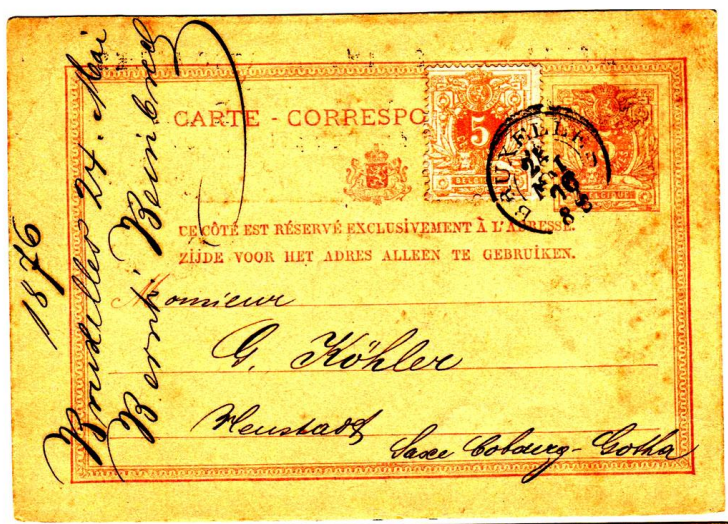 1876
Bruxelles 24. Mai
Bernh. Beinbreal
CARTE - CORRESPO
5
BRUXELLES
24
MAI
76
8
CE CÔTÉ EST RÉSERVÉ EXCLUSIVEMENT À L'ADRESSE.
ZIJDE VOOR HET ADRES ALLEEN TE GEBRUIKEN.
Monsieur
G. Köhler
Neustadt
Saxe Cobourg-Gotha